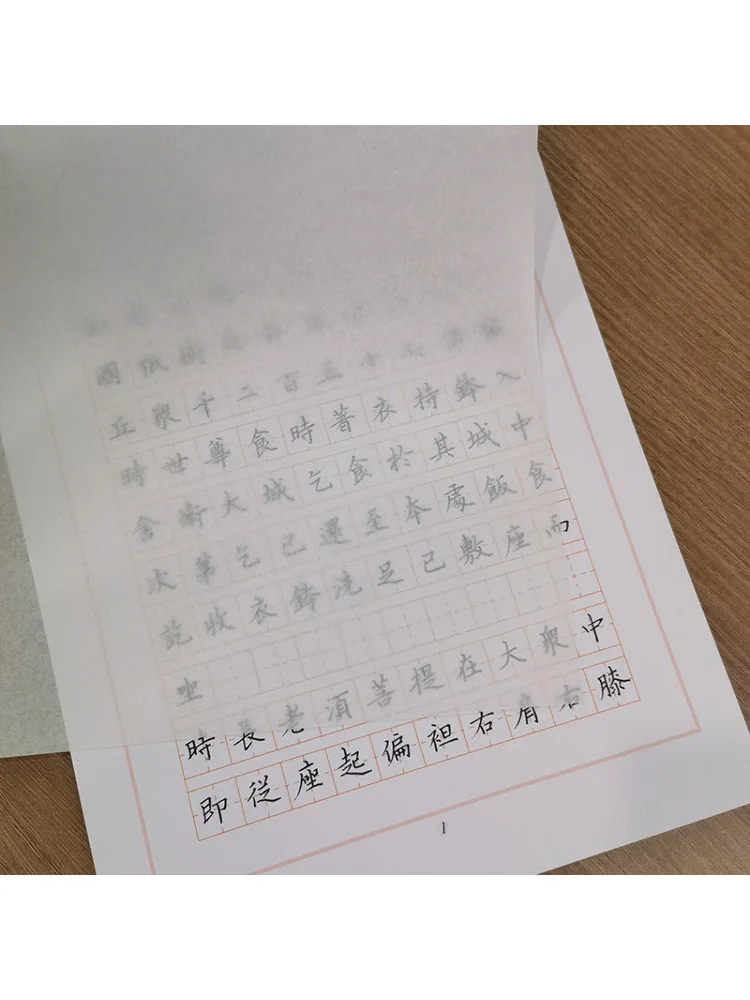 國祇樹
丘眾千二百五十人
時世尊食時著衣持鉢入
舍衛大城乞食於其城中
次第乞已還至本處飯食
訖收衣鉢洗足已敷座而
坐
時長老須菩提在大眾中
即從座起偏袒右肩右膝
1